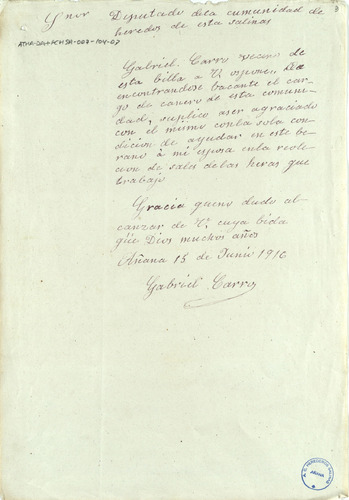 Snor Deputado dela cumunidad de
heredos de esta salinas
ATHA-DAI-FCHSA-007-104-07
Gabriel Carro vecino de
esta billa a V. espone, 
encontrandose bacante el car-
go de canero de esta comuni-
dad, suplico aser agraciado
con el mismo conla sola con-
dicion de ayudar en este be-
rano à mi esposa enla recolec-
cion de sales delas heras que
trabajo
Gracia queno dudo al-
canzar de V. cuya bida
güe Dios muchos años
Añana 15 de Junio 1916
Gabriel Carro
AÑANA